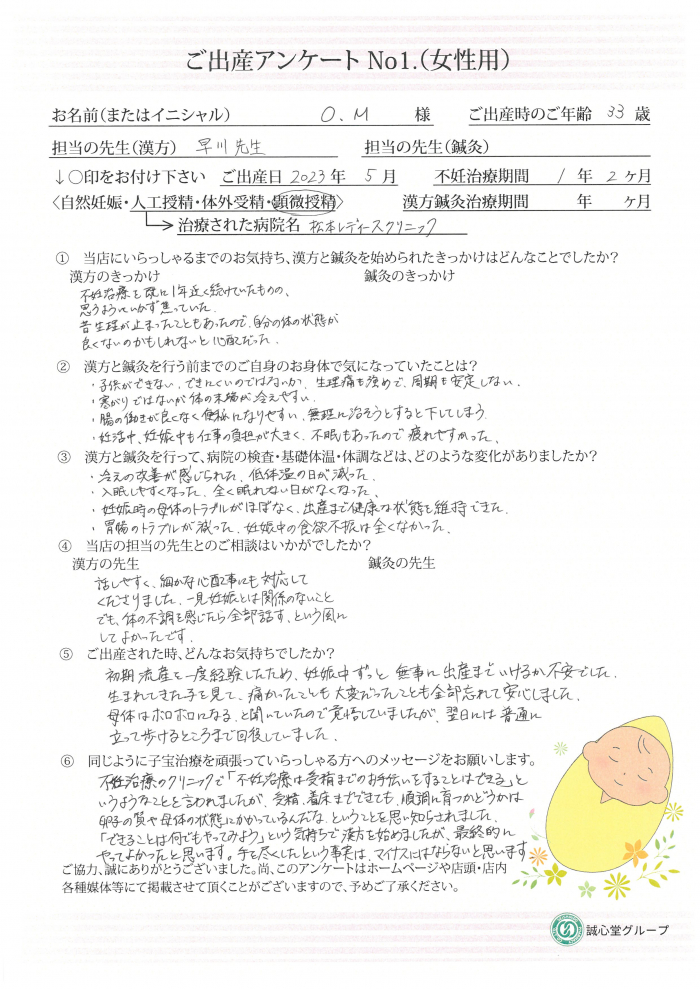 ご出産アンケート No1.(女性用)
お名前(またはイニシャル) O.M 様 ご出産時のご年齢 33 歳
担当の先生(漢方) 早川先生 担当の先生(鍼灸)
↓○印をお付け下さい ご出産日 2023年 5月 不妊治療期間 1年 2ヶ月
〈自然妊娠・人工授精・体外受精・顕微授精〉 漢方鍼灸治療期間 年 ヶ月
治療された病院名 松本レディースクリニック
① 当店にいらっしゃるまでのお気持ち、漢方と鍼灸を始められたきっかけはどんなことでしたか?
漢方のきっかけ 鍼灸のきっかけ
不妊治療を既に1年近く続けていたものの、
思うようにいかず焦っていた。
昔生理が止まったこともあったので、自分の体の状態が
良くないのかもしれないと心配だった。
② 漢方と鍼灸を行う前までのご自身のお身体で気になっていたことは?
・子供ができない、できにくいのではないか、生理痛も強めで、周期も安定しない。
・寒がりではないが体の末端が冷えやすい。
・腸の働きが良くなく便秘になりやすい、無理に治そうとすると下してしまう。
・妊活中、妊娠中も仕事の負担が大きく、不眠もあったので疲れやすかった。
③ 漢方と鍼灸を行って、病院の検査・基礎体温・体調などは、どのような変化がありましたか?
・冷えの改善が感じられた、低体温の日が減った。
・入眠しやすくなった、全く眠れない日がなくなった。
・妊娠時の母体のトラブルがほぼなく、出産まで健康な状態を維持できた。
・胃腸のトラブルが減った、妊娠中の食欲不振は全くなかった。
④ 当店の担当の先生とのご相談はいかがでしたか?
漢方の先生 鍼灸の先生
話しやすく、細かな心配事にも対応して
くださりました。一見妊娠とは関係のないこと
でも、体の不調を感じたら全部話す、という風に
してよかったです。
⑤ ご出産された時、どんなお気持ちでしたか?
初期流産を一度経験したため、妊娠中ずっと無事に出産までいけるか不安でした。
生まれてきた子を見て、痛かったことも大変だったことも全部忘れて安心しました。
母体はボロボロになる、と聞いていたので覚悟していましたが、翌日には普通に
立って歩けるところまで回復していました。
⑥ 同じように子宝治療を頑張っていらっしゃる方へのメッセージをお願いします。
不妊治療のクリニックで「不妊治療は受精までのお手伝いをすることはできる」と
いうようなことを言われましたが、受精、着床までできても、順調に育つかどうかは
卵子の質や母体の状態にかかっているんだな、ということを思い知らされました。
「できることは何でもやってみよう」という気持ちで漢方を始めましたが、最終的に
やってよかったと思います。手を尽くしたという事実は、マイナスにはならないと思います
ご協力、誠にありがとうございました。尚、このアンケートはホームページや店頭・店内
各種媒体等にて掲載させて頂くことがございますので、予めご了承ください。
誠心堂グループ